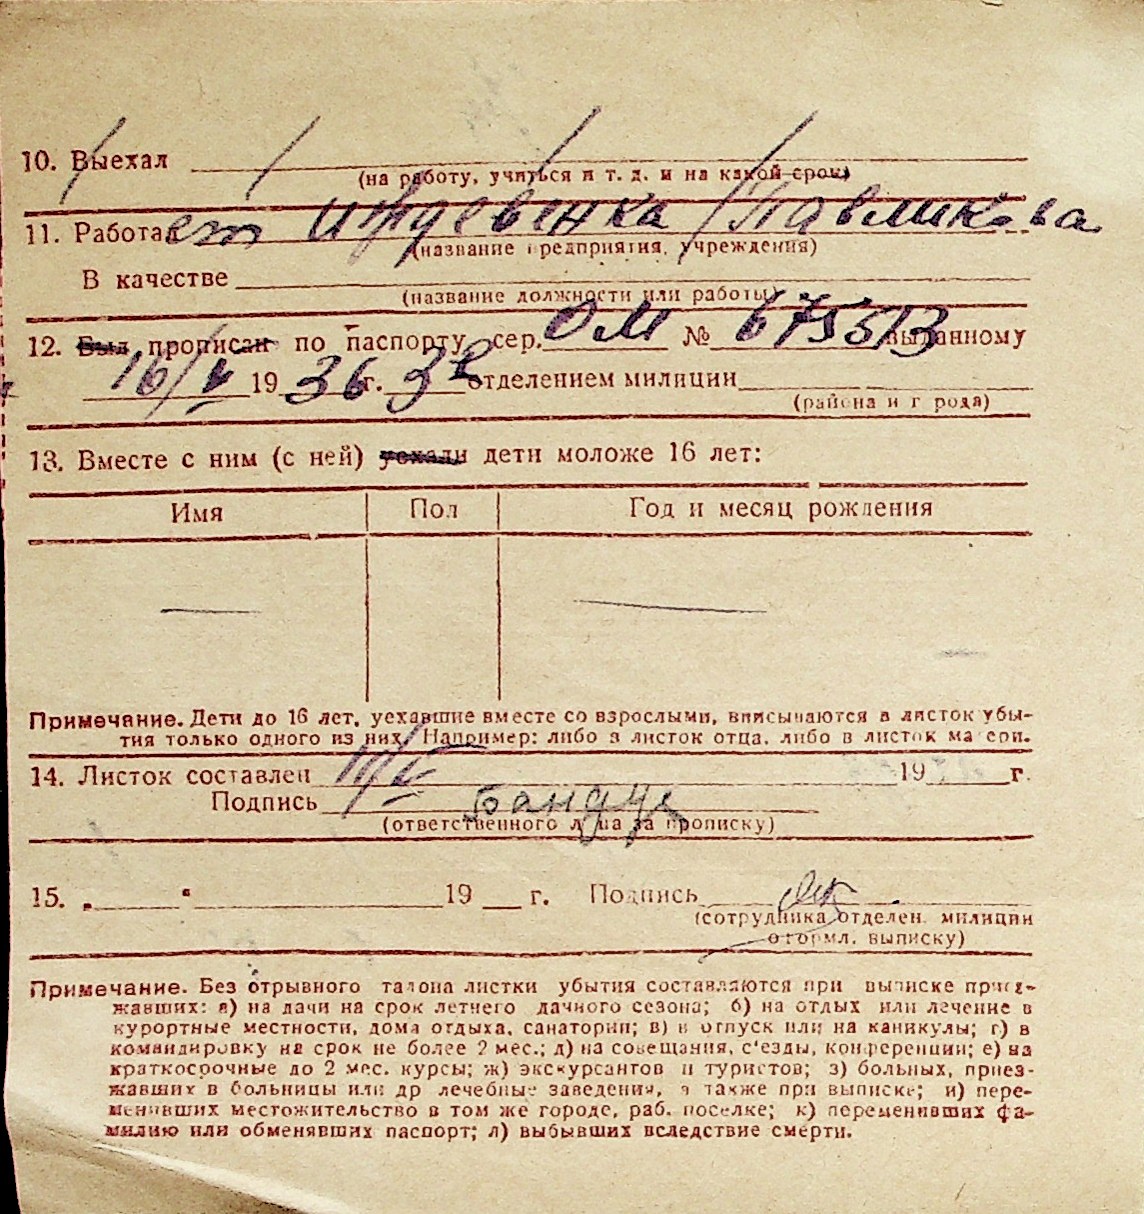 10. Выехал
(на работу, учиться и т. д. и на какой срок)
11. Работает иждевенка /Павликова
(название предприятия, учреждения)
В качестве
(название должности или работы)
12. Был прописан по паспорту сер. ОМ № 675513 выданному
16/V 1936 г. 3е отделением милиции
(района и города)
13. Вместе с ним (с ней) уехали дети моложе 16 лет:
Имя Пол Год и месяц рождения
— —
Примечание. Дети до 16 лет, уехавшие вместе со взрослыми, вписываются в листок убы-
тия только одного из них. Например: либо в листок отца, либо в листок матери.
14. Листок составлен 19 г.
Подпись
(ответственного лица за прописку)
15. „ “ 19 г. Подпись
(сотрудника отделен. милиции
оформл. выписку)
Примечание. Без отрывного талона листки убытия составляются при выписке приез-
жавших: а) на дачи на срок летнего дачного сезона; б) на отдых или лечение в
курортные местности, дома отдыха, санатории; в) в отпуск или на каникулы; г) в
командировку на срок не более 2 мес.; д) на совещания, с'езды, конференции; е) на
краткосрочные до 2 мес. курсы; ж) экскурсантов и туристов; з) больных, приез-
жавших в больницы или др лечебные заведения, а также при выписке; и) пере-
менивших местожительство в том же городе, раб. поселке; к) переменивших фа-
милию или обменявших паспорт; л) выбывших вследствие смерти.